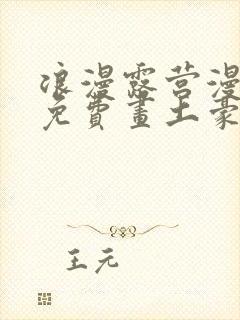 浪漫露营漫
免費畫土豪
王元